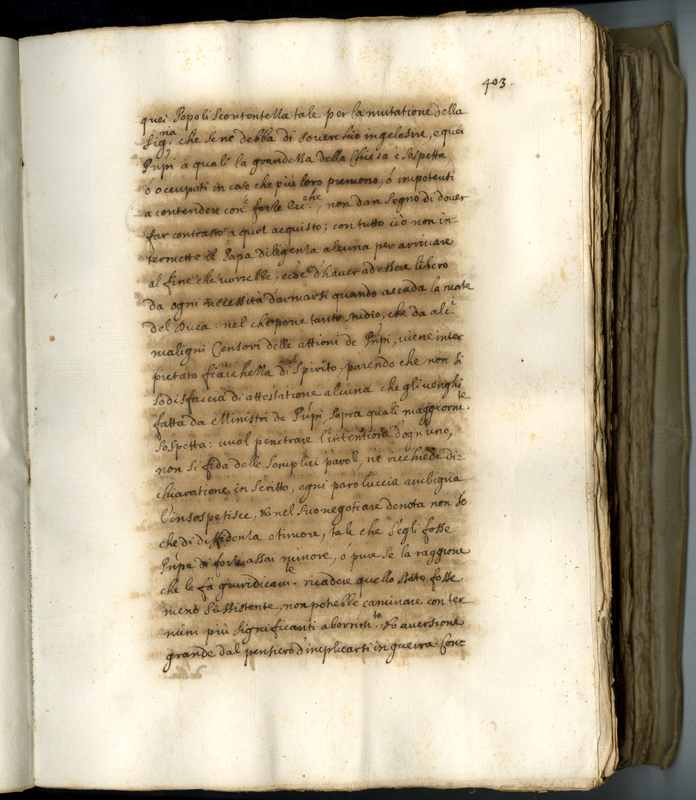 403.
quei Popoli scontentezza tale per la mutatione della
Sig.ria che se ne debba di souerchio ingelosire, e quei
Prīpi à quali la grandezza della Chiesa è sospetta,
o occupati in case che più loro premono, ò impotenti
a contendere con forze che, non dan segno di douer
far contrasto a quel acquisto; con tutto ciò non in=
termette il Papa diligenza alcuna per arriuare
al fine che uorrebbe, cioè d'hauer ad essere libero
da ogni necessità d'armarsi quando accada la morte
del Duca: nel che pone tanto studio, che da alc.i
maligni Censori delle attioni de Prīpi, uiene inter
pretato fiacchezza di spirito, parendo che non si
sodisfaccia di attestatione alcuna che gli uenghi
fatta da Ministri de Prīpi sopra quali maggiorm.te
sospetta: uuol penetrare l'intentione d'ogn'uno,
non si fida delle semplici parole, ne richiede di=
chiaratione in scritto, ogni paroluccia ambigua
l'insospetisce, & nel suo negotiare denota non so
che di diffidenza o timore, tale che s'egli fosse
Prīpe di forze assai minore, o pure se la raggione
che le fà giuridicam.te ricadere quello stato fosse
meno sussistente, non potrebbe caminare con ter
mini più significanti aborrim.to & auersione
grande dal pensiero d'implicarsi in guerra Cont
della